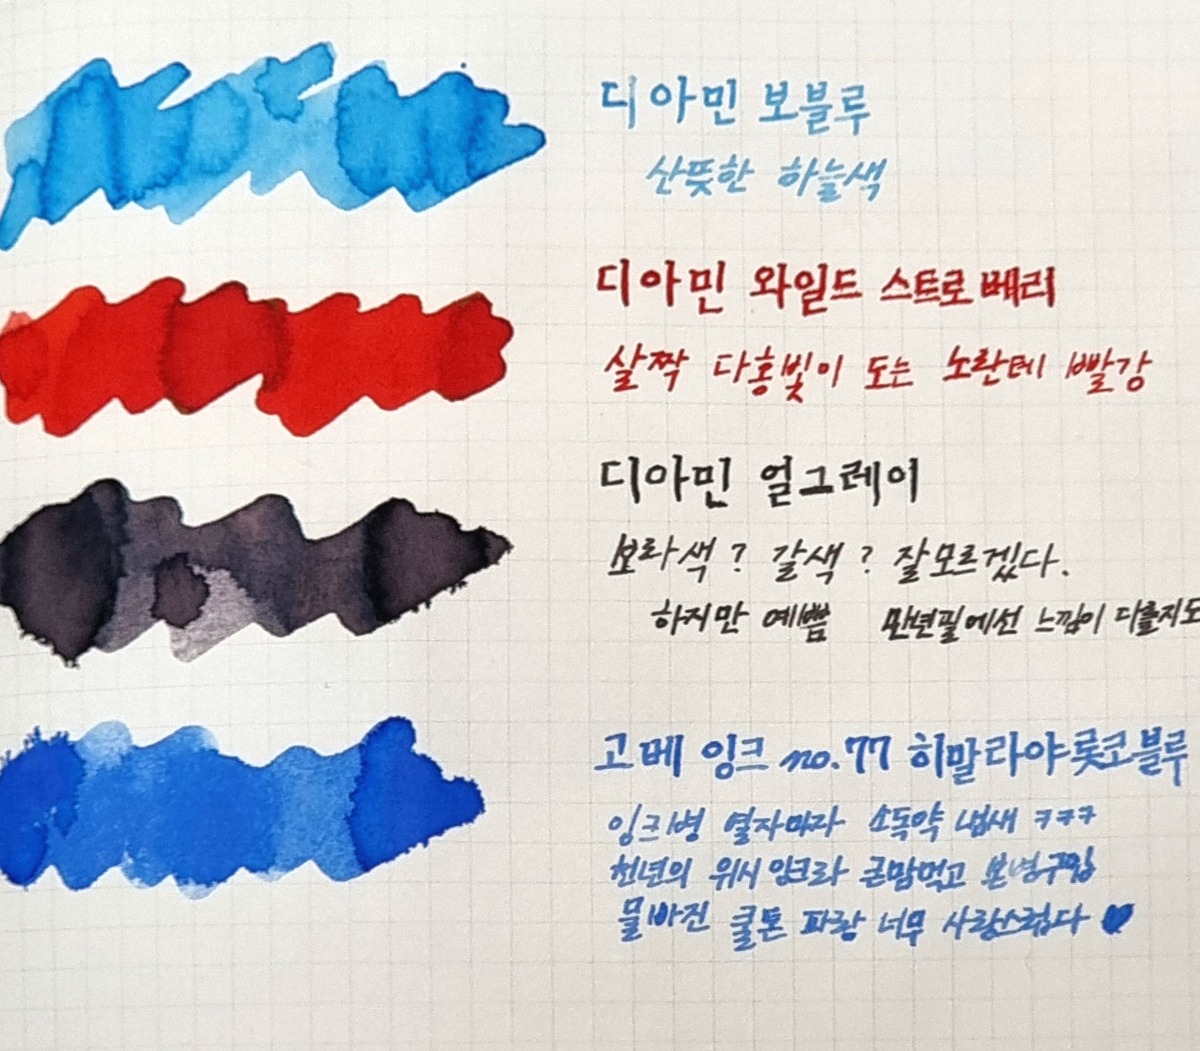 디아민 보블루
산뜻한 하늘색
디아민 와일드 스트로베리
살짝 다홍빛이 도는 노란테 빨강
디아민 얼그레이
보라색? 갈색? 잘모르겠다.
하지만 예쁨 만년필에선 느낌이 다를지도
고메 잉크 no.77 히말라야롯코블루
잉크병 열자마자 소독약 냄새 ㅋㅋㅋ
천년의 위시잉크라 큰맘먹고 본병구입
물빠진 쿨톤 파랑 너무 사랑스럽다